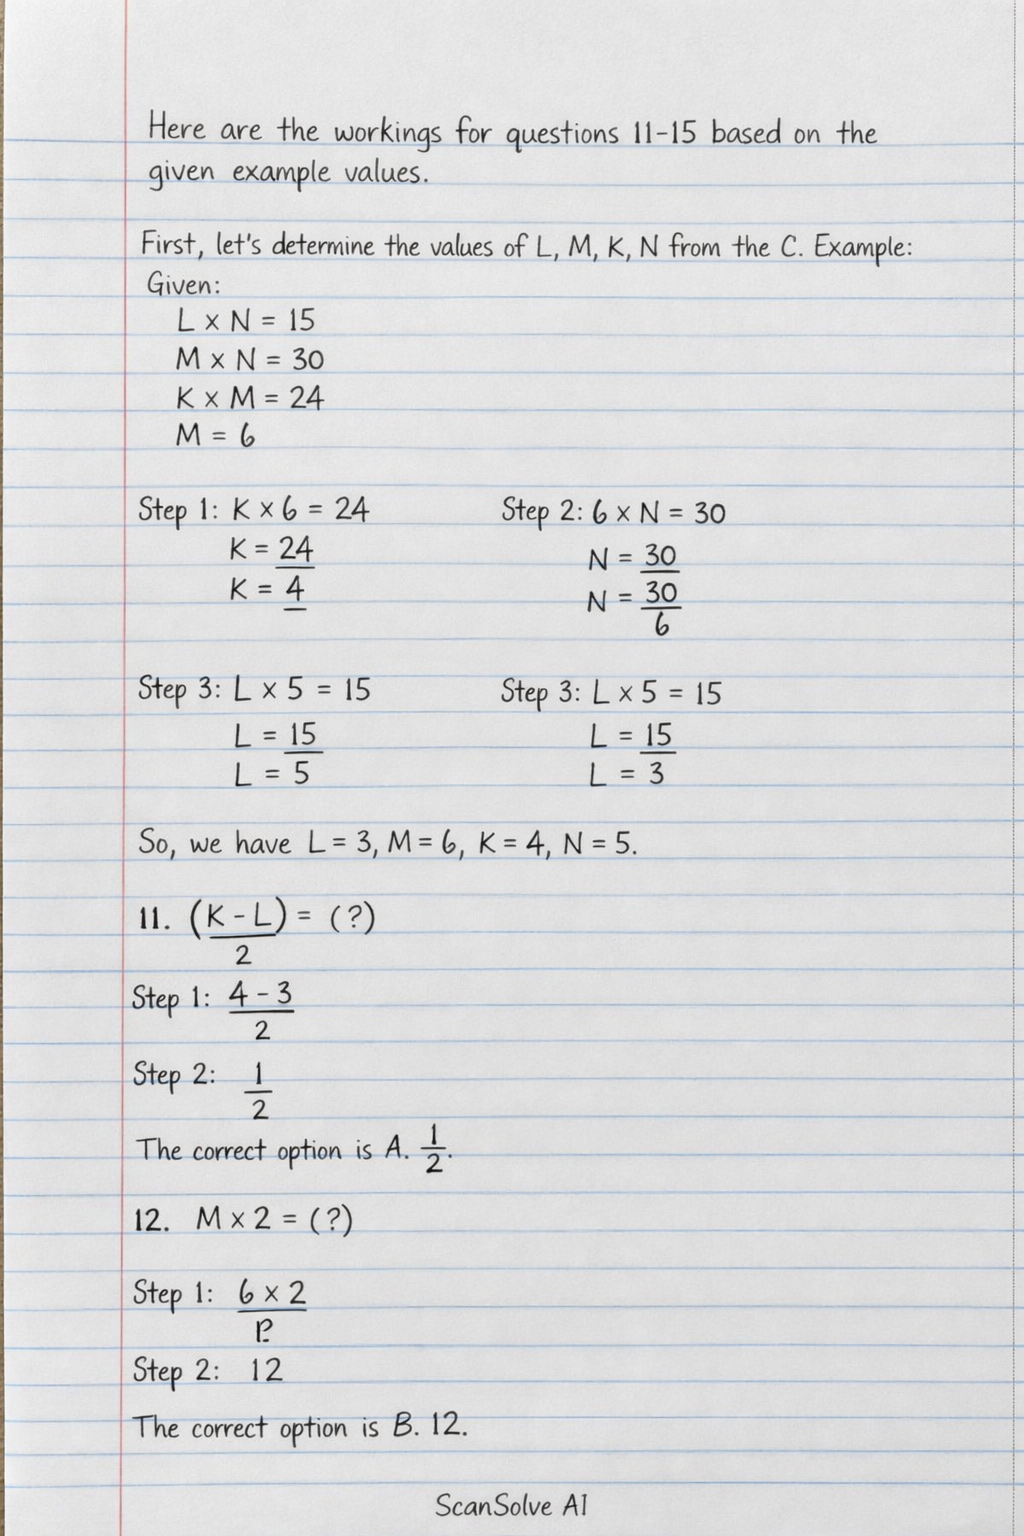 Here are the workings for questions 11-15 based on the
given example values.
First, let's determine the values of L, M, K, N from the C. Example:
Given:
L × N = 15
M × N = 30
K × M = 24
M = 6
Step 1: K × 6 = 24
K = 24
K = 4
Step 2: 6 × N = 30
N = 30
N = 30
6
Step 3: L × 5 = 15
L = 15
L = 5
Step 3: L × 5 = 15
L = 15
L = 3
So, we have L = 3, M = 6, K = 4, N = 5.
11. (K - L) = (?)
2
Step 1: 4 - 3
2
Step 2: 1
2
The correct option is A. 1/2.
12. M × 2 = (?)
Step 1: 6 × 2
Step 2: 12
The correct option is B. 12.
ScanSolve AI